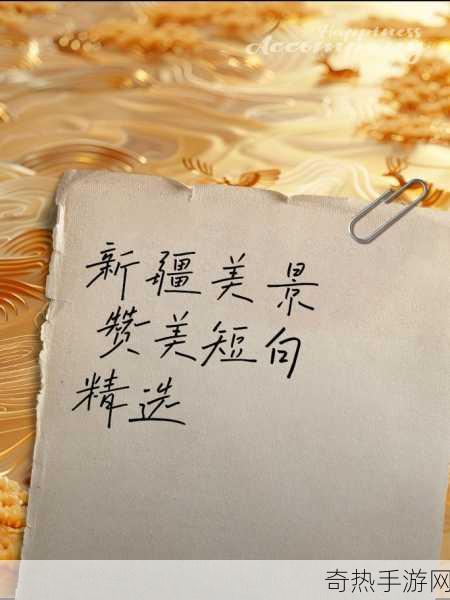 Happiness
Accompany
新疆美景
赞美短句
精选
奇热手游网